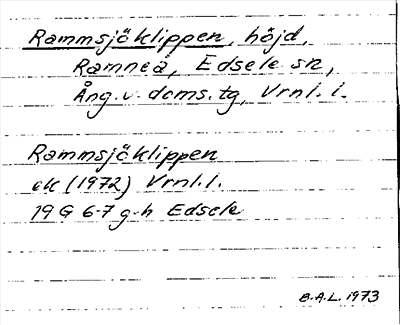 Rammsjöklippen, höjd,
Ramneå, Edsele sn,
Ång. v. doms. tg, Vrnl. l.
Rammsjöklippen
ek (1972) Vrnl. l.
19 G 6-7 g-h Edsele
B.A.L. 1973